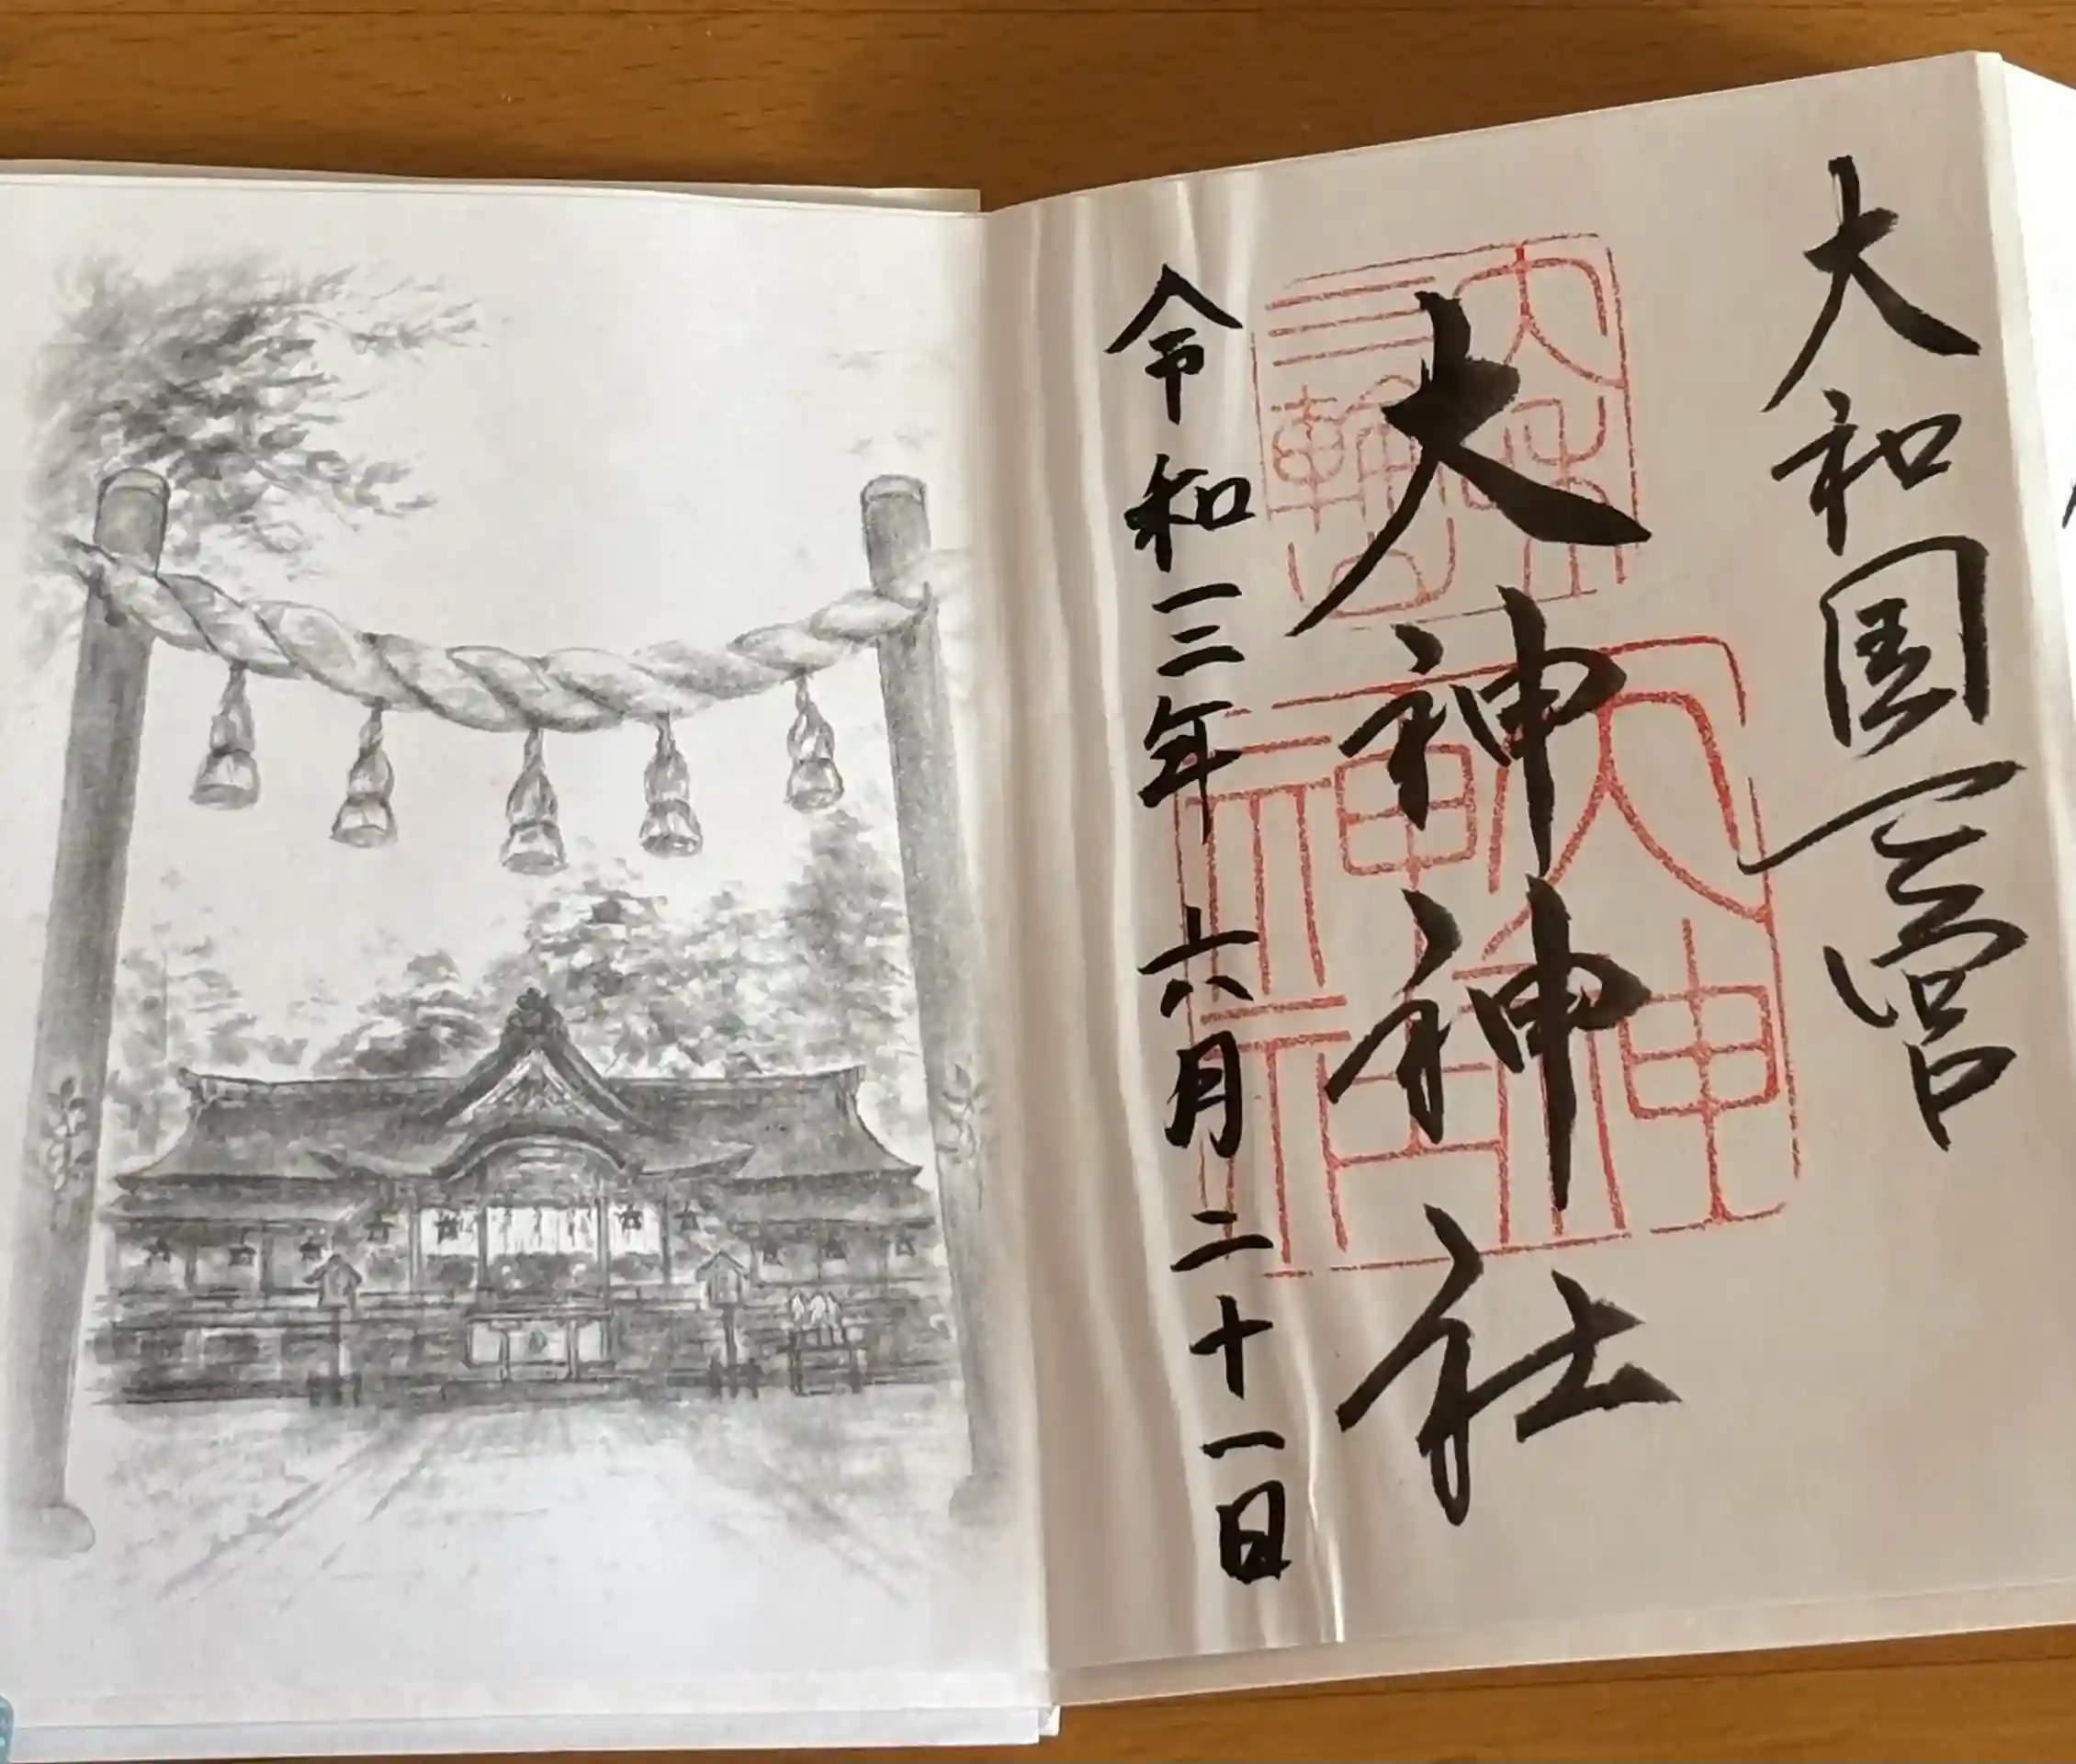 大和国一宮
大神神社
大神
神社
令和三年六月二十一日